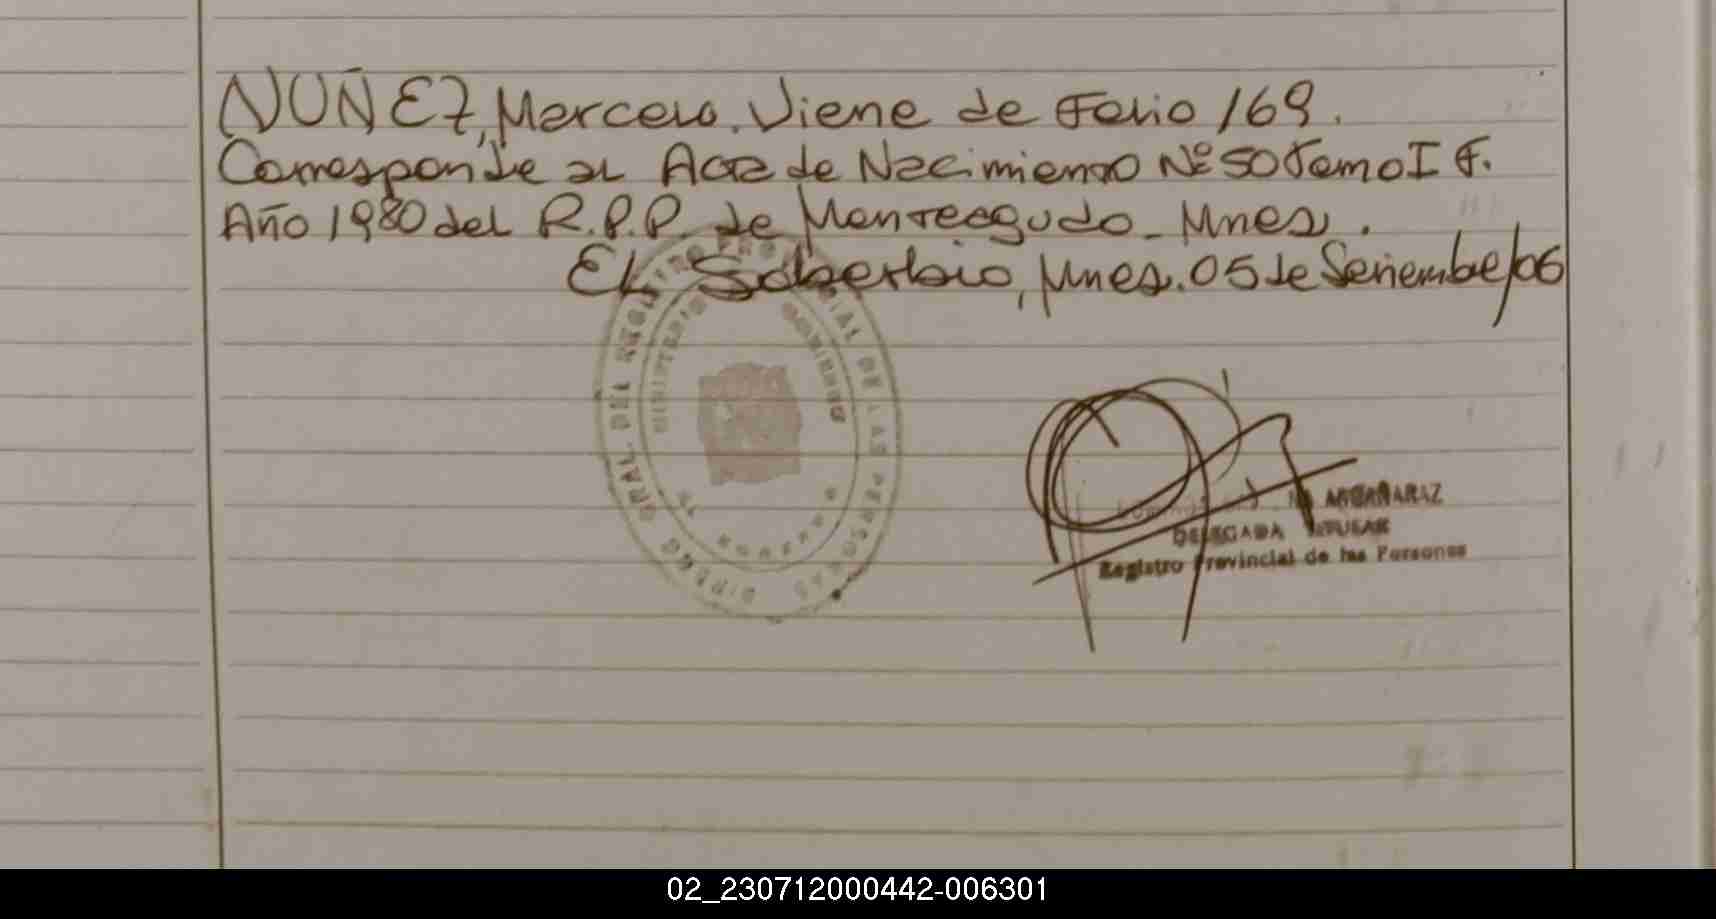 NUÑEZ, Marcelo. Viene de Folio 169.
Corresponde al Acta de Nacimiento Nº 50 Tomo I F.
Año 1980 del R.P.P. de Monteagudo - Mnes.
El Soberbio, Mnes. 05 de Setiembre/06
GRAL. DEL REGISTRO PROVINCIAL DE LAS PERSONAS
MINISTERIO GOBIERNO
ARGAÑARAZ
DELEGADA TITULAR
Registro Provincial de las Personas
02_230712000442-006301